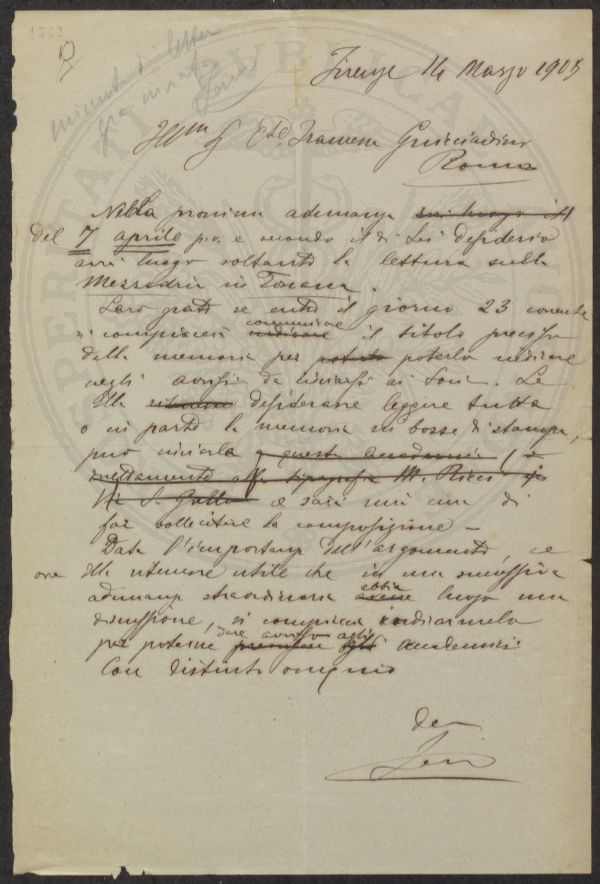 1522
minuta di lettera
Firenze 14 Marzo 1905
Ill.m S. Cte Francesco Guicciardini
Roma
Nella prossima adunanza
del 7 aprile p.v. e secondo il di Lei desiderio
avrà luogo soltanto la lettura sulla
Mezzadria in Toscana.
Sarò grato se entro il giorno 23 corrente
si compiacerà comunicare indicare il titolo preciso
della memoria per poterlo indicare
negli avvisi da inviarsi ai Soci. Se
Ella desiderasse leggere tutta
o in parte la memoria in bozze di stampa,
può inviarla a questa Accademia (o
direttamente alla tipografia M. Ricci
Via S. Gallo e sarà mia cura di
far sollecitare la composizione –
Data l'importanza dell'argomento,
ove Ella ritenesse utile che in una successiva
adunanza straordinaria abbia avesse luogo una
discussione, si compiaccia indicarmelo
per poterne dare avviso agli accademici
Con distinti ossequi